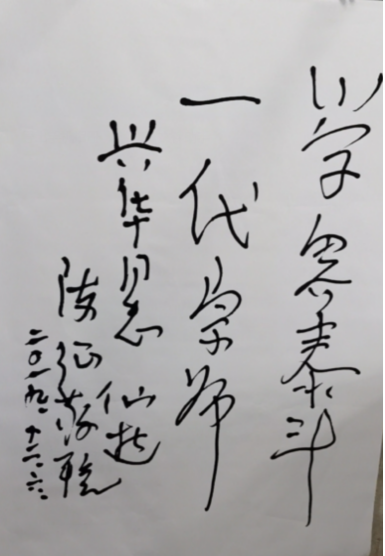 学界泰斗
一代宗师
兴华 仙逝
陈征敬挽
二〇一九.十二.六.